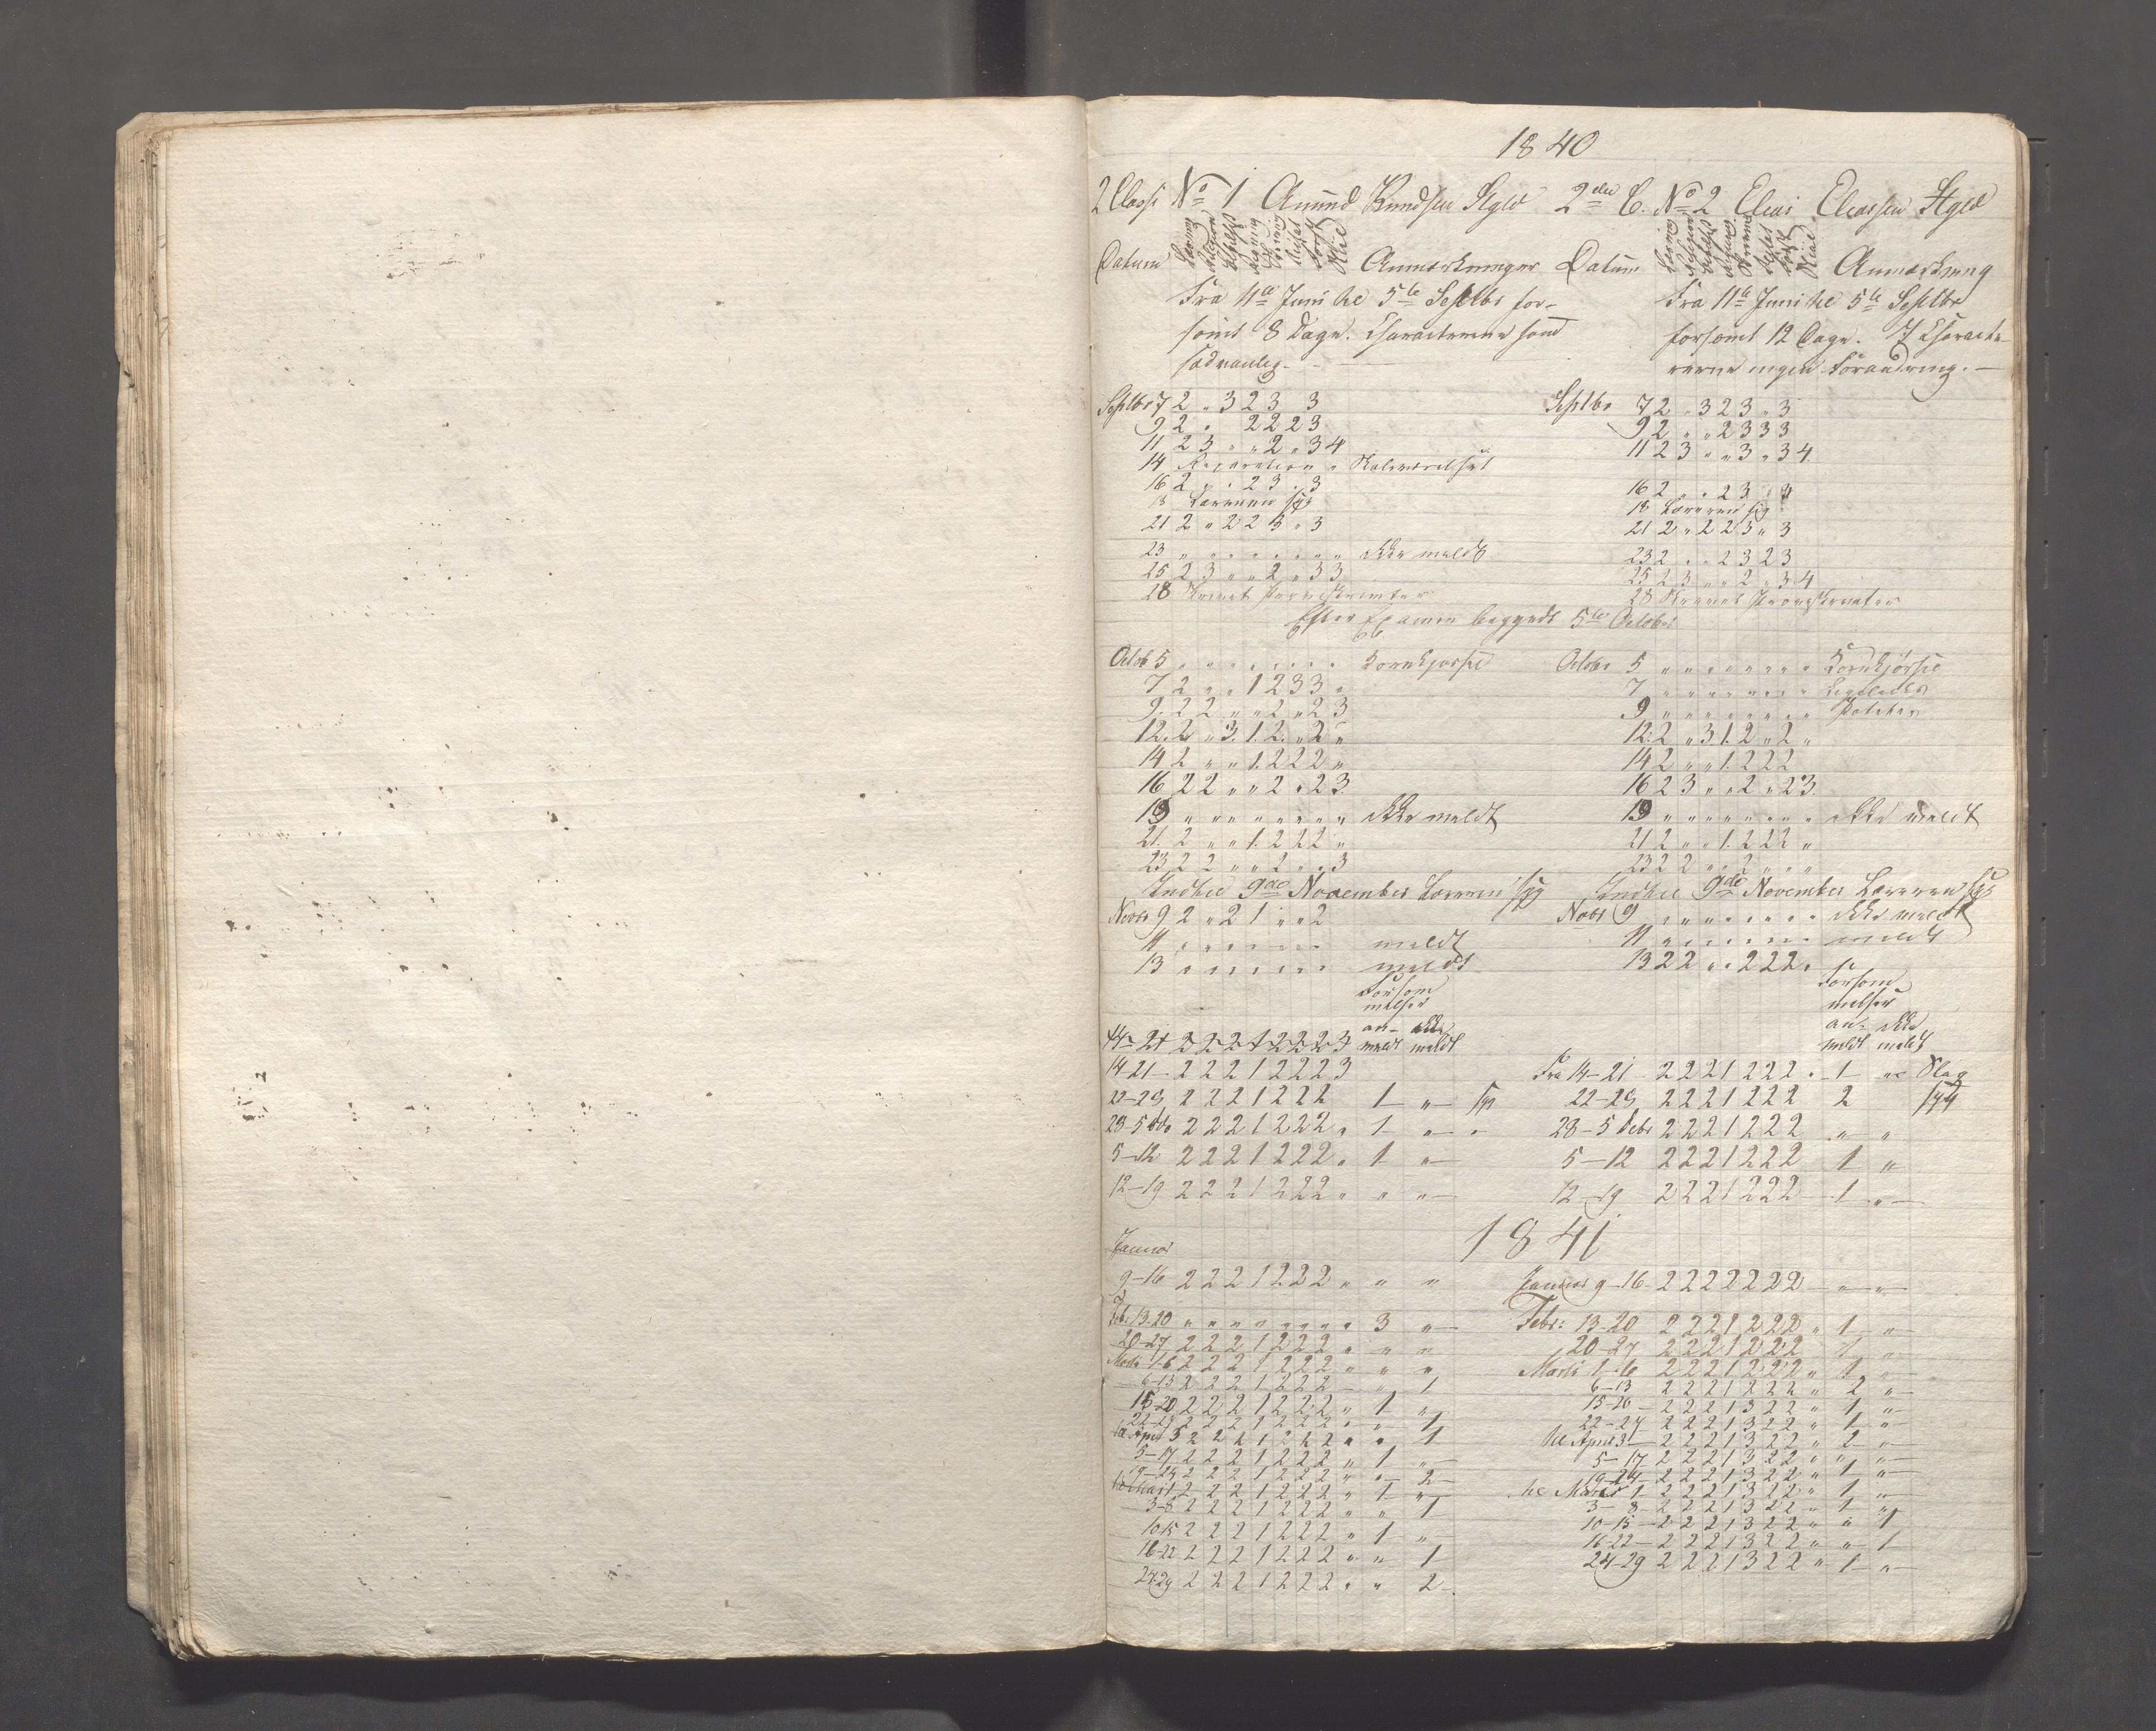 1840
2 Classe No 1 Amund Knudsen
Datum Religion Flid Anmærkninger
Fra 11te Juni til 5te Septbr for-
sømt 8 Dage. Characterene som
sædvanlig.
Septbr 7 2 „ 3 2 3 3
9 2 „ 2 2 2 3
11 2 3 „ „ 2 „ 3 4
14 Reparation
16 2 „ „ 2 3 „ 3
18 Læreren syg
21 2 „ 2 2 3 „ 3
23 „ „ „ „ „ „ „ „ ikke meldt
25 2 3 „ „ 2 „ 3 3
28 Skrevet Prøveskrifter
Efter Examen begyndt 5te October
Octob 5 „ „ „ „ „ „ „ „ Kornkjørsel
7 2 „ „ 1 2 3 3 „
9. 2 2 „ „ 2 „ 2 3
12. 2 „ 3. 1. 2. „ 2 „
14 2 „ „ 1. 2 2 2 „
16 2 2 „ „ 2 „ 2 3.
19 „ „ „ „ „ „ „ „ ikke meldt
21. 2 „ „ 1. 2 2 2 „
23 2 2 „ „ 2 „ „ 3
Indtil 9de November Læreren syg
Novbr 9 2 „ 2 1 „ „ 2
11 „ „ „ „ „ „ „ meldt
13 „ „ „ „ „ „ „ meldt
Forsøm
melser
an- ikke
14-21 2 2 2 1 2 2 2 3 meldt meldt
14-21- 2 2 2 1 2 2 2 3
22-28 2 2 2 1 2 2 2 1 „ syg
28-5 2 2 2 1 2 2 2 „ 1 „ „
5-12 2 2 2 1 2 2 2 „ 1 „
12-19 2 2 2 1 2 2 2 „ „ „
1841
Januar
9-16 2 2 2 1 2 2 2 „ „ „
Feb: 13-20 „ „ „ „ „ „ „ „ 3 „
20-27 2 2 2 1 2 2 2 „ „ „
Marts 1-6 2 2 2 1 2 2 2 „ „ „
6-13 2 2 2 1 2 2 2 - „ 1
15-20 2 2 2 1 2 2 2 „ 1 „
22-27 2 2 2 1 2 2 2 „ „ 1
til April 3 2 2 2 1 2 2 2 „ „ 1
5-17 2 2 2 1 2 2 2 „ 1 „
19-24 2 2 2 1 2 2 2 „ „ 2
til Mai 1 2 2 2 1 2 2 2 „ 1 „
3-8 2 2 2 1 2 2 2 „ „ 1
10-15 2 2 2 1 2 2 2 „ 1 „
16-22 2 2 2 1 2 2 2 „ „ 1
24-29 2 2 2 1 2 2 2 „ „ 2
2den C. No 2 Elias Eliassen
Datum Religion Flid Anmærkning
Fra 11te Juni til 5te Septbr
forsømt 12 Dage. I Characte-
rerne ingen Forandring.
Septbr 7 2 „ 3 2 3 „ 3
9 2 „ „ 2 3 3 3
11 2 3 „ „ 3 „ 3 4.
16 2 „ „ 2 3 „ 4
18 Læreren syg
21 2 „ 2 2 3 „ 3
23 2 „ „ 2 3 2 3
25 2 3 „ „ 2 „ 3 4
28 Skrevet Prøveskrifter
Octobr 5 „ „ „ „ „ „ „ „ Kornkjørsel
7 „ „ „ „ „ „ „ „ Ligeledes
9 „ „ „ „ „ „ „ „ Poteter
12: 2 „ 3 1. 2 „ 2 „
14 2 „ „ 1. 2 2 2
16 2 3 „ „ 2 „ 2 3.
19 „ „ „ „ „ „ „ „ ikke meldt
21 2 „ „ 1. 2 2 2 „
23 2 2 „ „ 2 „ „ „
Indtil 9de November Læreren syg
Novbr 9 „ „ „ „ „ „ „ „ ikke meldt
11 „ „ „ „ „ „ „ „ meldt
13 2 2 „ „ 2 2 2 „
Forsøm
melser
an- ikke
meldt meldt
Fra 14-21 2 2 2 1 2 2 2 „ 1 „
22-28 2 2 2 1 2 2 2 2 syg
28-5 Debr 2 2 2 1 2 2 2 „ „
5-12 2 2 2 1 2 2 2 1 „
12-19 2 2 2 1 2 2 2 1 „
Januar 9-16- 2 2 2 2 2 2 2 „ „
Febr: 13-20 2 2 2 1 2 2 2 „ 1 „
20-27 2 2 2 1 2 2 2 1 „
Marts 1-6 2 2 2 1 2 2 2 „ 1 „
6-13 2 2 2 1 2 2 2 „ 2 „
15-20 - 2 2 2 1 3 2 2 „ 1 „
22-27 2 2 2 1 3 2 2 „ 1 „
til April 3 - 2 2 2 1 3 2 2 „ 2 „
5-17 2 2 2 1 3 2 2 „ „ „
19-24- 2 2 2 1 3 2 2 „ 1 „
til Mai 1- 2 2 2 1 3 2 2 „ 1 „
3-8- 2 2 2 1 3 2 2 „ 1 „
10-15-2 2 2 1 3 2 2 „ „ 1
16-22-2 2 2 1 3 2 2 „ „ 1
24-29 2 2 2 1 3 2 2 „ 1 „